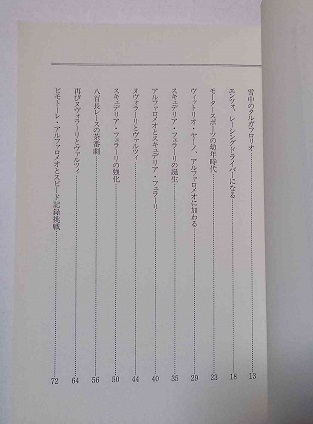 雪中のタルガフロリオ 13
エンツォ、レーシングドライバーになる 18
モータースポーツの幼年時代 23
ヴィットリオ・ヤーノ、アルファロメオに加わる 29
スキュデリア・フェラーリの誕生 35
アルファロメオとスキュデリア・フェラーリ 40
ヌヴォラーリとヴァルツィ 44
スキュデリア・フェラーリの強化 50
八百長レースの茶番劇 56
再びヌヴォラーリとヴァルツィ 64
ビモトーレ・アルファロメオとスピード記録挑戦 72